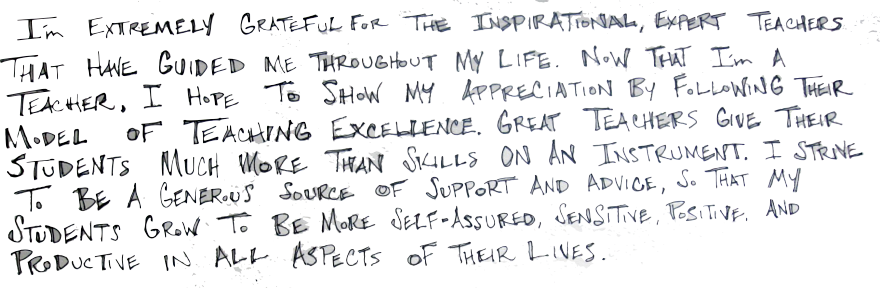 I'm EXTREMELY GRATEFUL FOR THE INSPIRATIONAL, EXPERT TEACHERS
THAT HAVE GUIDED ME THROUGHOUT MY LIFE. NOW THAT I'm A
TEACHER, I HOPE TO SHOW MY APPRECIATION BY FOLLOWING THEIR
MODEL OF TEACHING EXCELLENCE. GREAT TEACHERS GIVE THEIR
STUDENTS MUCH MORE THAN SKILLS ON AN INSTRUMENT. I STRIVE
TO BE A GENEROUS SOURCE OF SUPPORT AND ADVICE, SO THAT MY
STUDENTS GROW TO BE MORE SELF-ASSURED, SENSITIVE, POSITIVE, AND
PRODUCTIVE IN ALL ASPECTS OF THEIR LIVES.